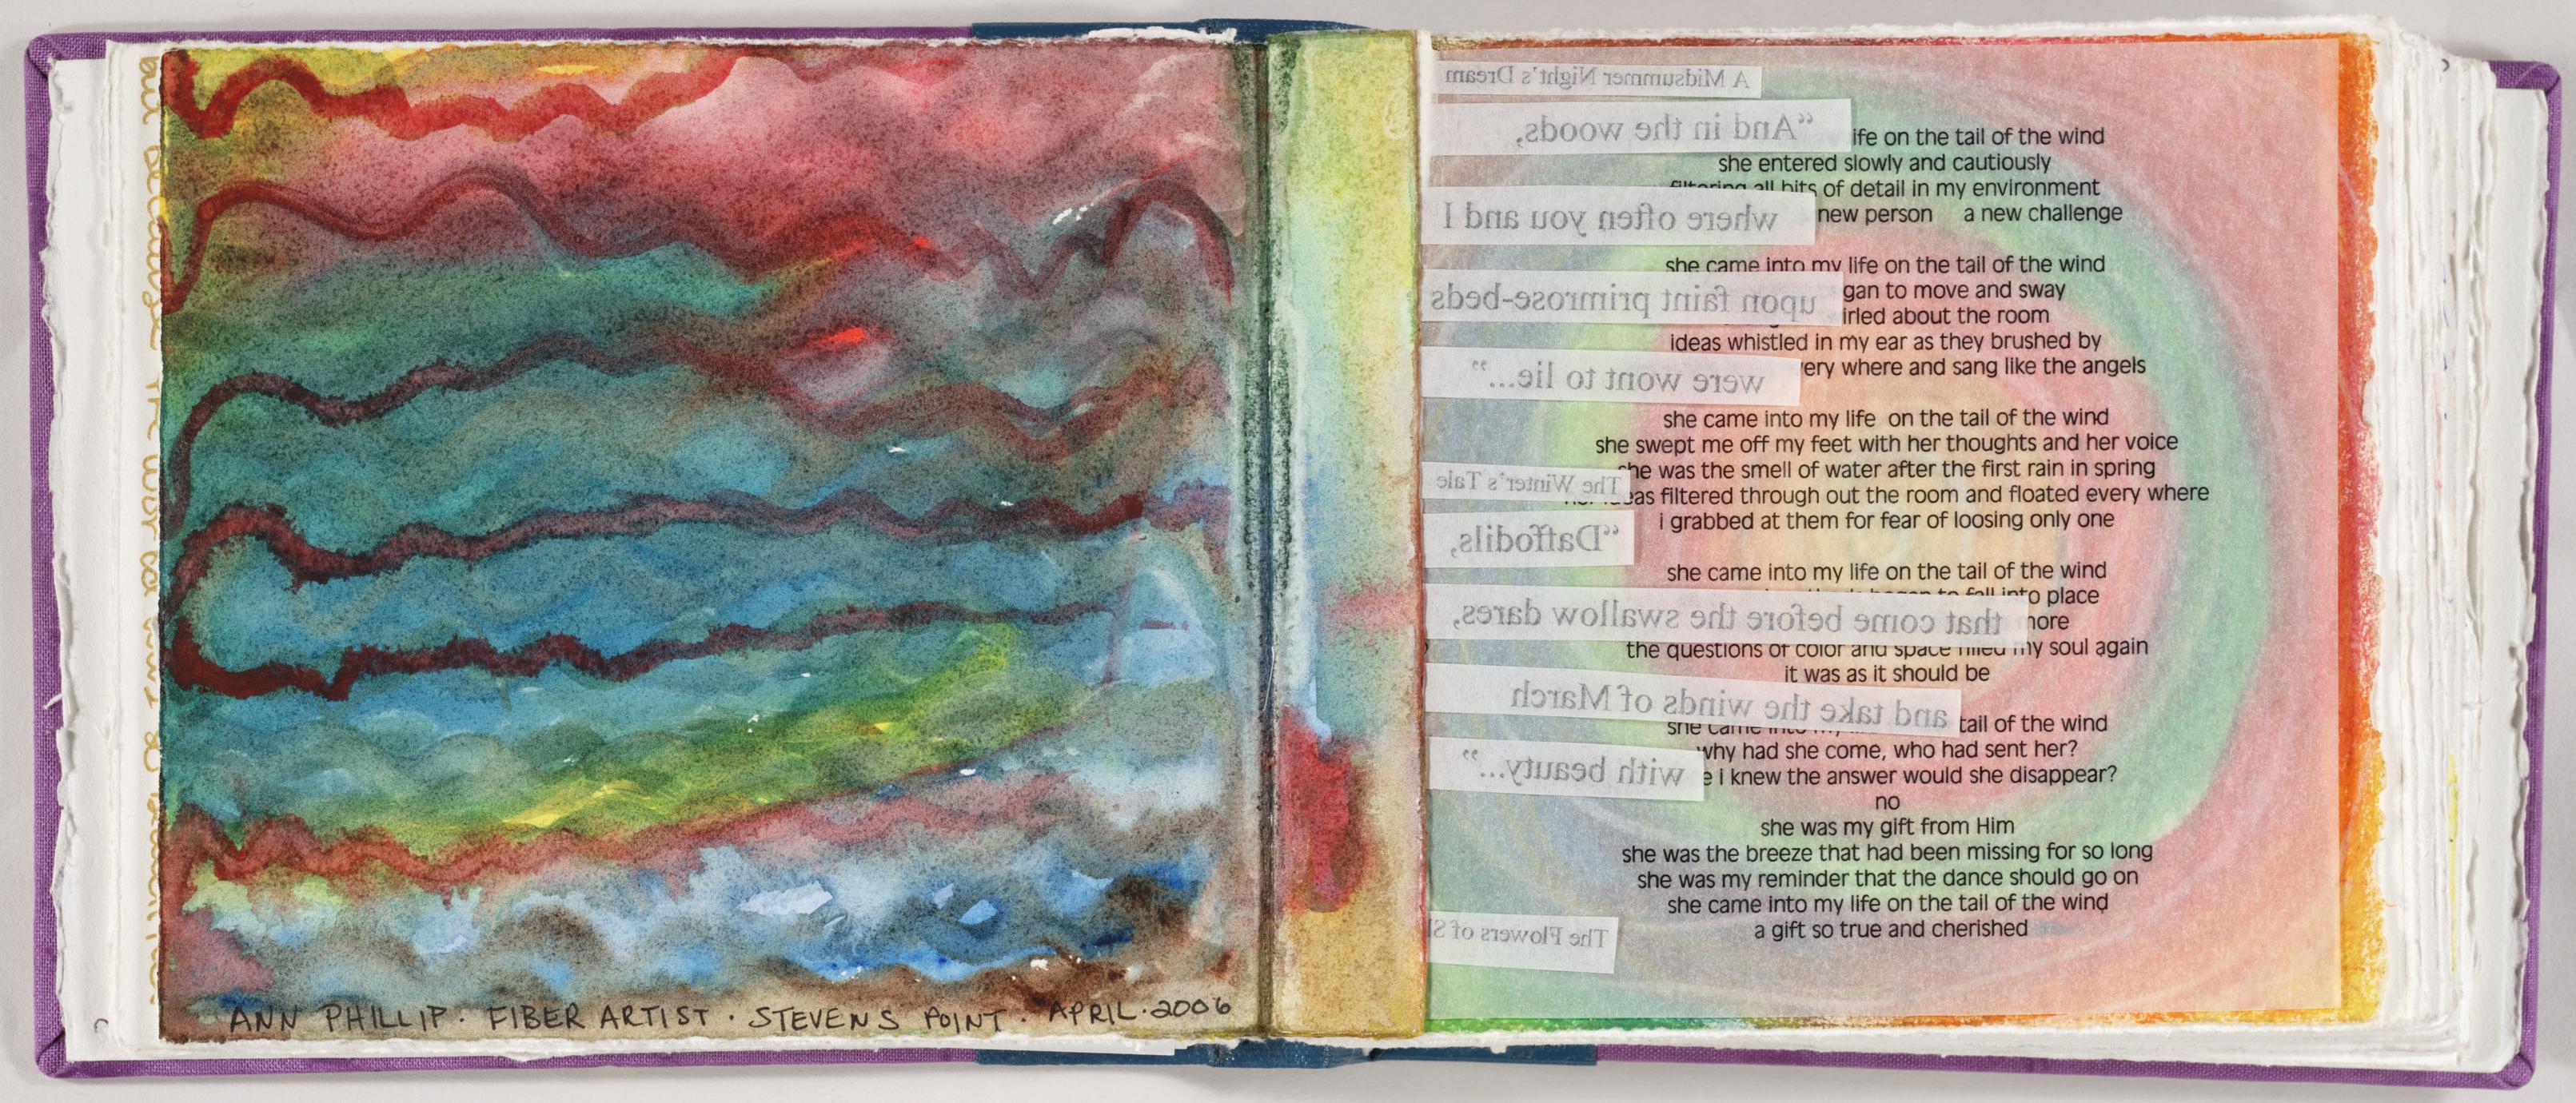 but because the
ANN PHILLIP · FIBER ARTIST · STEVENS POINT · APRIL · 2006
A Midsummer Night's Dream
"And in the woods,
where often you and I
upon faint primrose-beds
were wont to lie..."
The Winter's Tale
"Daffodils,
that come before the swallow dares,
and take the winds of March
with beauty..."
The Flowers of
ife on the tail of the wind
she entered slowly and cautiously
filtering all bits of detail in my environment
new person a new challenge
she came into my life on the tail of the wind
gan to move and sway
irled about the room
ideas whistled in my ear as they brushed by
very where and sang like the angels
she came into my life on the tail of the wind
she swept me off my feet with her thoughts and her voice
she was the smell of water after the first rain in spring
eas filtered through out the room and floated every where
i grabbed at them for fear of loosing only one
she came into my life on the tail of the wind
began to fall into place
more
the questions of color and space filled my soul again
it was as it should be
she came into my tail of the wind
why had she come, who had sent her?
e i knew the answer would she disappear?
no
she was my gift from Him
she was the breeze that had been missing for so long
she was my reminder that the dance should go on
she came into my life on the tail of the wind
a gift so true and cherished